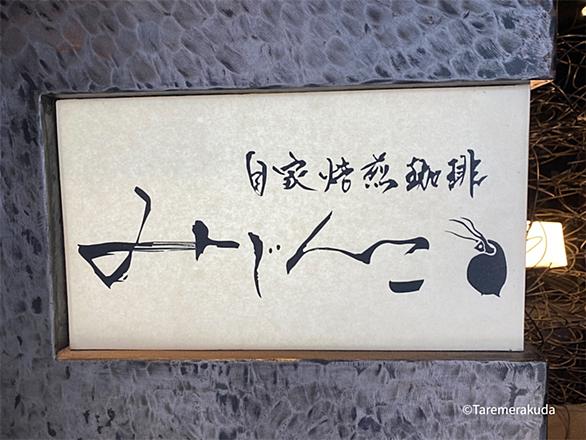 自家焙煎珈琲
みじんこ
©Taremerakuda